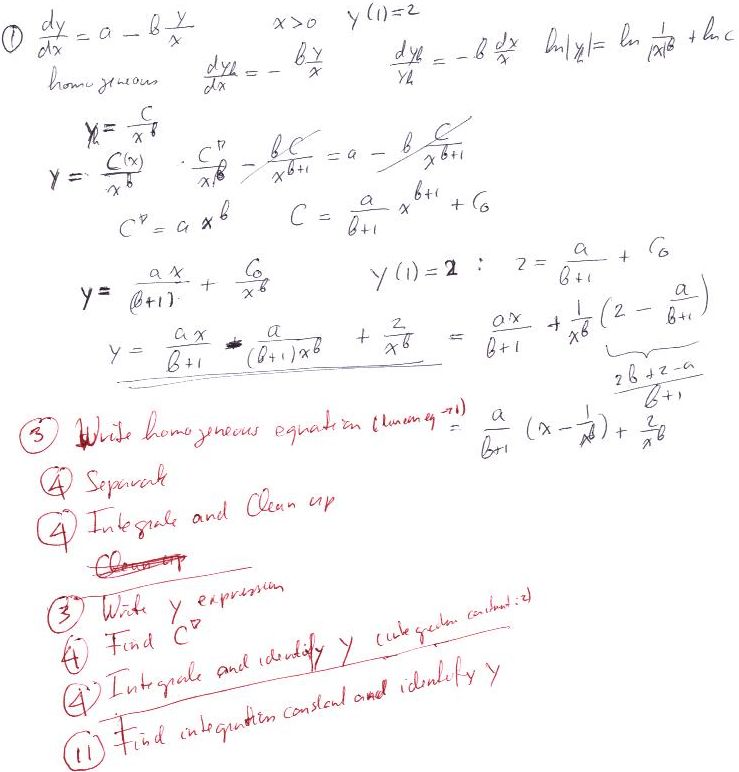 ① dy/dx = a - b y/x   x>0   y(1)=2
homogeneous   dyh/dx = - by/x   dyh/yh = -b dx/x   ln|yh| = ln 1/|x|^b + ln c
yh = C/x^b
y = C(x)/x^b · C'/x^b - bC/x^(b+1) = a - b C/x^(b+1)
C' = a x^b   C = a/(b+1) x^(b+1) + C₀
y = ax/(b+1) + C₀/x^b   y(1)=2 : 2 = a/(b+1) + C₀
y = ax/(b+1) - a/((b+1)x^b) + 2/x^b = ax/(b+1) + 1/x^b (2 - a/(b+1))
(2b+2-a)/(b+1)
= a/(b+1) (x - 1/x^b) + 2/x^b
③ Write homogeneous equation (linear eq → 1)
④ Separate
④ Integrate and Clean up
Clean up
③ Write y expression
④ Find C'
④ Integrate and identify y (integration constant: 2)
⑪ Find integration constant and identify y